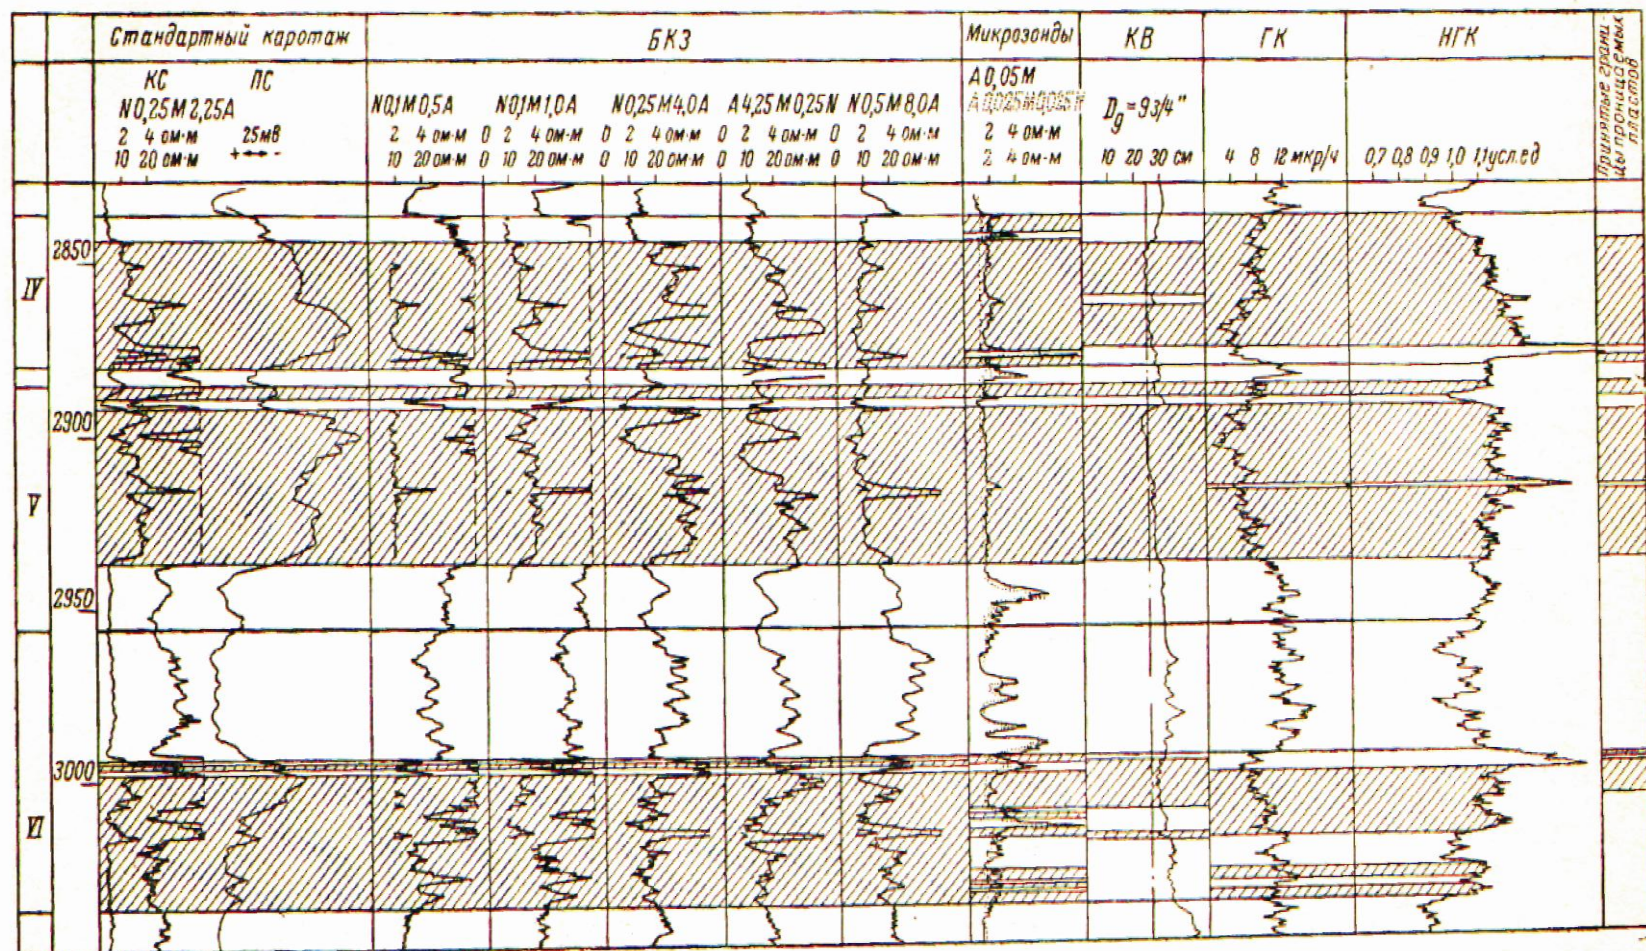 Стандартный каротаж
БКЗ
Микрозонды
КВ
ГК
НГК
Принятые грани-
цы проницаемых
пластов
КС ПС
N0,25M2,25A
2 4 ом·м 25мВ
10 20 ом·м + -
N0,1M0,5A
2 4 ом·м
10 20 ом·м
N0,1M1,0A
0 2 4 ом·м
0 10 20 ом·м
N0,25M4,0A
0 2 4 ом·м
0 10 20 ом·м
A4,25M0,25N
0 2 4 ом·м
0 10 20 ом·м
N0,5M8,0A
0 2 4 ом·м
0 10 20 ом·м
A0,05M
A0,025M0,025N
2 4 ом·м
2 4 ом·м
Dg=9 3/4"
10 20 30 см
4 8 12 мкр/ч
0,7 0,8 0,9 1,0 1,1 усл.ед
IV
V
VI
2850
2900
2950
3000